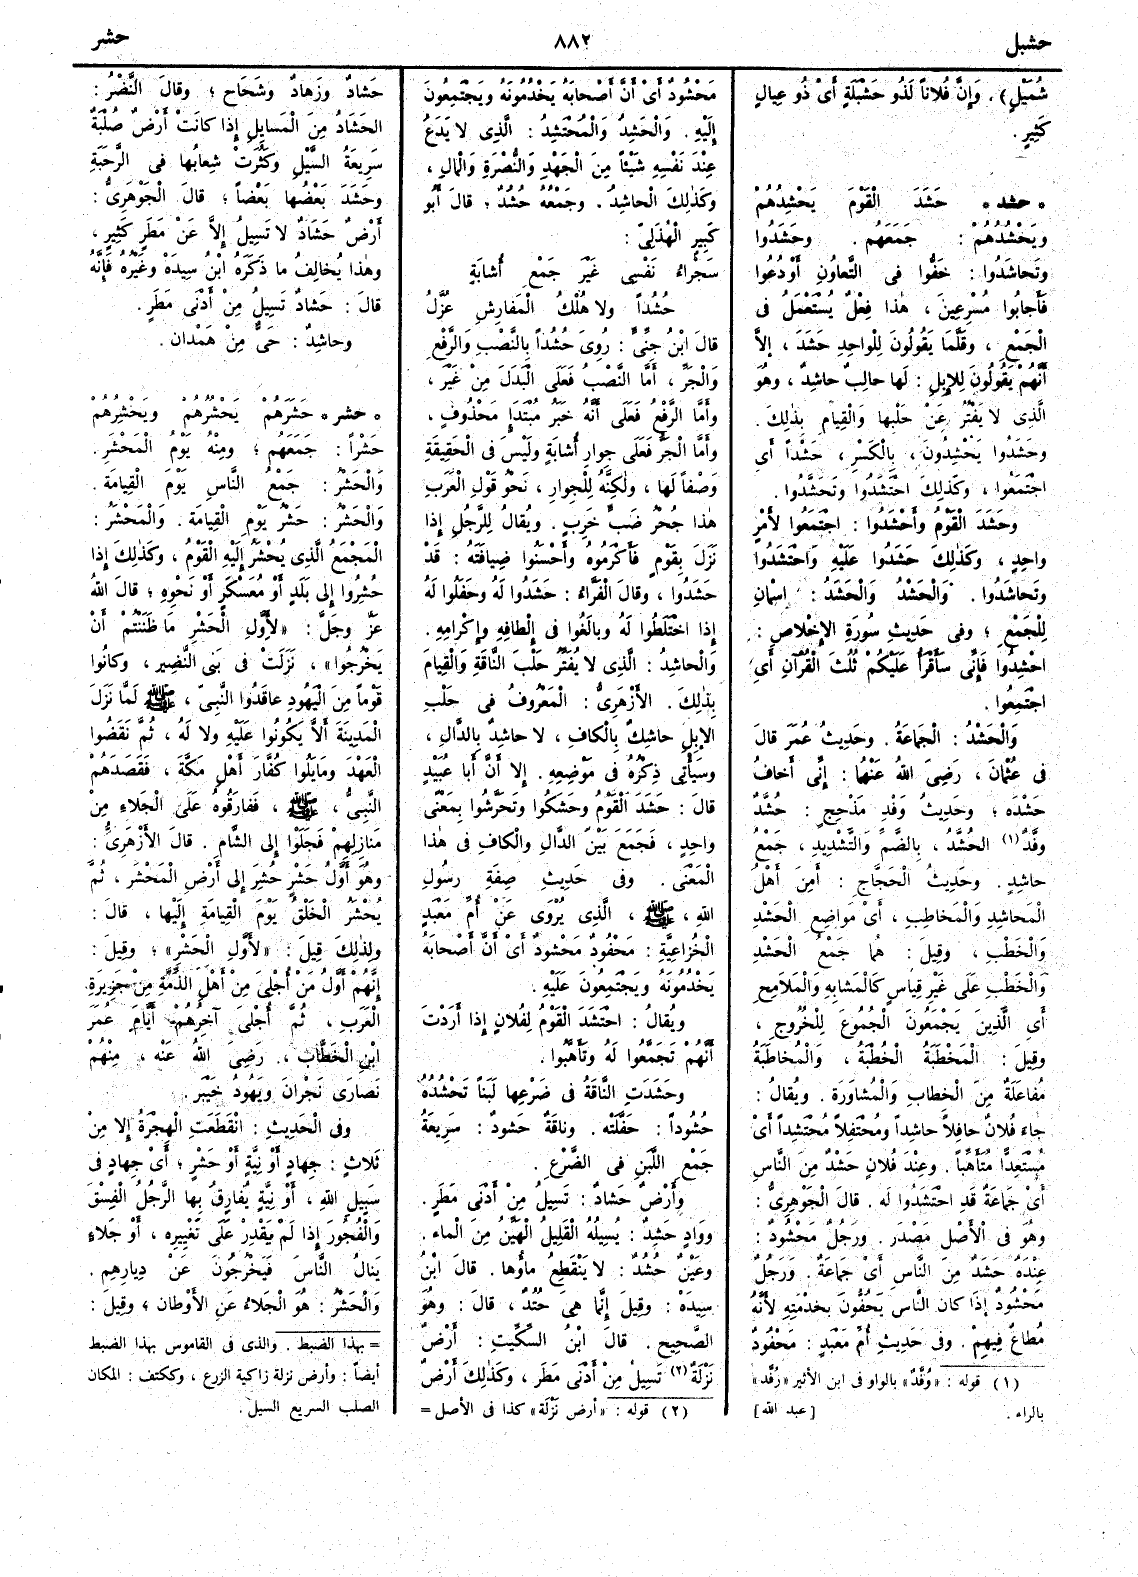 حشبل
٨٨٢
حشر
شُمَيْلٍ) . وَإِنَّ فُلَاناً لَذُو حَشْبَلَةٍ أَىْ ذُو عِيالٍ
كَثِيرٍ .
• حشد • حَشَدَ الْقَوْمَ يَحْشِدُهُمْ
وَيَحْشُدُهُمْ : جَمَعَهُم . وحَشَدُوا
وَتَحاشَدُوا : خَفُّوا فى التَّعاوُنِ أَوْ دُعُوا
فَأَجابُوا مُسْرِعِينَ ، هٰذا فِعْلٌ يُسْتَعْمَلُ فى
الْجَمْعِ ، وقَلَّمَا يَقُولُونَ لِلْواحِدِ حَشَدَ ، إلاَّ
أَنَّهُمْ يَقُولُونَ لِلإِبِلِ : لَها حالِبٌ حاشِدٌ ، وهُوَ
الَّذِى لا يَفْتُرُ عَنْ حَلْبِها وَالْقِيامِ بِذٰلِكَ .
وَحَشَدُوا يَحْشِدُونَ ، بِالْكَسْرِ ، حَشْداً أَىِ
اجْتَمَعُوا ، وَكَذٰلِكَ احْتَشَدُوا وتَحَشَّدُوا .
وحَشَدَ الْقَوْمُ وأَحْشَدُوا : اجْتَمَعُوا لأَمْرٍ
واحِدٍ ، وكَذٰلِكَ حَشَدُوا عَلَيْهِ وَاحْتَشَدُوا
وتَحاشَدُوا . وَالْحَشْدُ وَالْحَشَدُ : اسْمانِ
لِلْجَمْعِ ؛ وفى حَدِيثِ سُورَةِ الإِخْلاصِ :
احْشِدُوا فَإِنِّى سَأَقْرَأُ عَلَيْكُمْ ثُلُثَ الْقُرْآنِ أَىِ
اجْتَمِعُوا .
وَالْحَشْدُ : الْجَماعَةُ . وحَدِيثُ عُمَرَ قالَ
فى عُثْمانَ ، رَضِىَ اللهُ عَنْهُما : إِنِّى أَخافُ
حَشْدَهُ ؛ وحَدِيثُ وَفْدِ مَذْحِجٍ : حُشَّدٌ
وفَّدٌ (١) الحُشَّدُ ، بِالضَّمِّ وَالتَّشْدِيدِ ، جَمْعُ
حاشِدٍ . وحَدِيثُ الْحَجَّاجِ : أَمِنَ أَهْلُ
الْمَحاشِدِ وَالْمَخاطِبِ ، أَىْ مَواضِعِ الْحَشْدِ
وَالْخَطْبِ ، وقِيلَ : هُما جَمْعُ الْحَشْدِ
وَالْخَطْبِ عَلَى غَيْرِ قِياسٍ كَالْمَشابِهِ وَالْمَلامِحِ
أَىِ الَّذِينَ يَجْمَعُونَ الْجُمُوعَ لِلْخُرُوجِ ،
وقِيلَ : الْمَخْطَبَةُ الْخُطْبَةُ ، وَالْمُخاطَبَةُ
مُفاعَلَةٌ مِنَ الْخِطابِ وَالْمُشاوَرَةِ . ويُقالُ :
جاءَ فُلانٌ حافِلاً حاشِداً ومُحْتَفِلاً مُحْتَشِداً أَىْ
مُسْتَعِدًّا مُتَأَهِّباً . وعِنْدَ فُلانٍ حَشْدٌ مِنَ النَّاسِ
أَىْ جَماعَةٌ قَدِ احْتَشَدُوا لَه . قالَ الْجَوْهَرِىُّ :
وهُوَ فى الأَصْلِ مَصْدَر . ورَجُلٌ مَحْشُودٌ :
عِنْدَهُ حَشَدٌ مِنَ النَّاسِ أَىْ جَماعَةٌ . ورَجُلٌ
مَحْشُودٌ إِذا كانَ النَّاس يَحُفُّونَ بِخِدْمَتِهِ لأَنَّهُ
مُطاعٌ فِيهِمْ . وفى حَدِيثِ أُمِّ مَعْبَدٍ : مَحْفُودٌ
(١) قوله : «وُفَّدٌ» بالواو فى ابن الأثير «رُفَّد»
بالراء . [عبد الله]
مَحْشُودٌ أَىْ أَنَّ أَصْحابَهُ يَخْدُمُونَهُ ويَجْتَمِعُونَ
إِلَيْهِ . وَالْحَشِدُ وَالْمُحْتَشِدُ : الَّذِى لا يَدَعُ
عِنْدَ نَفْسِهِ شَيْئاً مِنَ الْجَهْدِ وَالنُّصْرَةِ وَالْمالِ ،
وكَذٰلِكَ الْحاشِدُ . وجَمْعُهُ حُشُدٌ ؛ قالَ أَبُو
كَبِيرٍ الْهُذَلِىّ :
سَجُراءَ نَفْسِى غَيْرَ جَمْعِ أُشابَةٍ
حُشُداً ولا هُلْكُ الْمَفارِشِ عُزَّلُ
قالَ ابْنُ جِنِّىٍّ : رُوِىَ حُشُداً بِالنَّصْبِ وَالرَّفْعِ
وَالْجَرِّ ، أَمَّا النَّصْبُ فَعَلَى الْبَدَلِ مِنْ غَيْر ،
وأَمَّا الرَّفْعُ فَعَلَى أَنَّهُ خَبَرُ مُبْتَدَإٍ مَحْذُوفٍ ،
وأَمَّا الْجَرُّ فَعَلَى جِوارِ أُشابَةٍ وَلَيْسَ فى الْحَقِيقَةِ
وَصْفاً لَها ، ولٰكِنَّهُ لِلْجِوارِ ، نَحْوُ قَوْلِ الْعَرَبِ
هٰذا جُحْرُ ضَبٍّ خَرِبٍ . ويُقالُ لِلرَّجُلِ إِذا
نَزَلَ بِقَوْمٍ فَأَكْرَمُوهُ وأَحْسَنُوا ضِيافَتَهُ : قَدْ
حَشَدُوا ، وقالَ الْفَرَّاءُ : حَشَدُوا لَهُ وحَفَلُوا لَهُ
إِذا اخْتَلَطُوا لَهُ وبالَغُوا فى إِلْطافِهِ وإِكْرامِهِ .
وَالْحاشِدُ : الَّذِى لا يُفَتِّرُ حَلْبَ النَّاقَةِ وَالْقِيامَ
بِذٰلِكَ . الأَزْهَرِىُّ : الْمَعْرُوفُ فى حَلْبِ
الإِبِلِ حاشِكٌ بِالْكافِ ، لا حاشِدٌ بِالدَّالِ ،
وسَيَأْتِى ذِكْرُهُ فى مَوْضِعِهِ . إِلا أَنَّ أَبا عُبَيْدٍ
قالَ : حَشَدَ الْقَوْمُ وحَشَكُوا وتَحَرَّشُوا بِمَعْنًى
واحِدٍ ، فَجَمَعَ بَيْنَ الدَّالِ وَالْكافِ فى هٰذا
الْمَعْنَى . وفى حَدِيثِ صِفَةِ رَسُولِ
اللهِ ، ﷺ ، الَّذِى يُرْوَى عَنْ أُمِّ مَعْبَدٍ
الْخُزاعِيَّةِ : مَحْفُودٌ مَحْشُودٌ أَىْ أَنَّ أَصْحابَهُ
يَخْدُمُونَهُ ويَجْتَمِعُونَ عَلَيْهِ .
ويُقالُ : احْتَشَدَ الْقَوْمُ لِفُلانٍ إِذا أَرَدْتَ
أَنَّهُمْ تَجَمَّعُوا لَهُ وتَأَهَّبُوا .
وحَشَدَتِ النَّاقَةُ فى ضَرْعِها لَبَناً تَحْشُدُهُ
حُشُوداً : حَفَّلَتْه . وناقَةٌ حشودٌ : سَرِيعَةُ
جَمْعِ اللَّبَنِ فى الضَّرْعِ .
وأَرْضٌ حَشادٌ : تَسِيلُ مِنْ أَدْنَى مَطَرٍ .
ووادٍ حَشِدٌ : يُسِيلُهُ الْقَلِيلُ الْهَيِّنُ مِنَ الْماء .
وعَيْنٌ حُشُدٌ : لا يَنْقَطِعُ ماؤُها . قالَ ابْنُ
سِيدَهْ : وقِيلَ إِنَّما هِىَ حُتُدٌ ، قالَ : وهُوَ
الصَّحِيح . قالَ ابْنُ السِّكِّيتِ : أَرْضٌ
نَزْلَةٌ (٢) تَسِيلُ مِنْ أَدْنَى مَطَر ، وكَذٰلِكَ أَرْضٌ
(٢) قوله : «أرض نَزْلَة» كذا فى الأصل =
حَشادٌ وَزَهادٌ وشَحَاح ؛ وقالَ النَّضْرُ :
الْحَشَادُ مِنَ الْمَسايِلِ إِذا كانَتْ أَرْضٌ صُلْبَةٌ
سَرِيعَةُ السَّيْلِ وكَثُرَتْ شِعابُها فى الرَّحَبَةِ
وحَشَدَ بَعْضُها بَعْضاً ؛ قالَ الْجَوْهَرِىُّ :
أَرْضٌ حَشَادٌ لا تَسِيلُ إِلاَّ عَنْ مَطَرٍ كَثِيرٍ ،
وهٰذا يُخالِفُ ما ذَكَرَهُ ابْنُ سِيدَهْ وغَيْرُهُ فَإِنَّهُ
قالَ : حَشادٌ تَسِيلُ مِنْ أَدْنَى مَطَرٍ .
وحاشِدٌ : حَىٌّ مِنْ هَمْدان .
• حشر • حَشَرَهُمْ يَحْشُرُهُمْ ويَحْشِرُهُمْ
حَشْراً : جَمَعَهُم ؛ ومِنْهُ يَوْمُ الْمَحْشَرِ .
وَالْحَشْرُ : جَمْعُ النَّاسِ يَوْمَ الْقِيامَةِ .
وَالْحَشْرُ : حَشْرُ يَوْمِ الْقِيامَة . وَالْمَحْشَرُ :
الْمَجْمَعُ الَّذِى يُحْشَرُ إِلَيْهِ الْقَوْمُ ، وكَذٰلِكَ إِذا
حُشِرُوا إِلى بَلَدٍ أَوْ مُعَسْكَرٍ أَوْ نَحْوِهِ ؛ قالَ اللهُ
عَزَّ وجَلَّ : «لأَوَّلِ الْحَشْرِ ما ظَنَنْتُمْ أَنْ
يَخْرُجُوا» ، نَزَلَتْ فى بَنِى النَّضِير ، وكانُوا
قَوْماً مِنَ الْيَهُودِ عاقَدُوا النَّبِىَّ ، ﷺ لَمَّا نَزَلَ
الْمَدِينَةَ أَلاَّ يَكُونُوا عَلَيْهِ ولا لَهُ ، ثُمَّ نَقَضُوا
الْعَهْدَ ومَايَلُوا كُفَّارَ أَهْلِ مَكَّةَ ، فَقَصَدَهُمُ
النَّبِىُّ ، ﷺ ، فَفارَقُوهُ عَلَى الْجَلاءِ مِنْ
مَنازِلِهِمْ فَجَلَوْا إِلى الشَّامِ . قالَ الأَزْهَرِىُّ :
وهُوَ أَوَّلُ حَشْرٍ حُشِرَ إِلى أَرْضِ الْمَحْشَرِ ، ثُمَّ
يُحْشَرُ الْخَلْقُ يَوْمَ الْقِيامَةِ إِلَيْها ، قالَ :
ولِذٰلِكَ قِيلَ : «لأَوَّلِ الْحَشْرِ» ؛ وقِيلَ :
إِنَّهُمْ أَوَّلُ مَنْ أُجْلِىَ مِنْ أَهْلِ الذِّمَّةِ مِنْ جَزِيرَةِ
الْعَرَبِ ، ثُمَّ أُجْلِىَ آخِرُهُمْ أَيَّامَ عُمَرَ
ابْنِ الْخَطَّابِ ، رَضِىَ اللهُ عَنْه ، مِنْهُمْ
نَصارَى نَجْرانَ ويَهُودُ خَيْبَر .
وفى الْحَدِيثِ : انْقَطَعَتِ الْهِجْرَةُ إِلا مِنْ
ثَلاثٍ : جِهادٍ أَوْ نِيَّةٍ أَوْ حَشْرٍ ؛ أَىْ جِهادٍ فى
سَبِيلِ اللهِ ، أَوْ نِيَّةٍ يُفارِقُ بِها الرَّجُلُ الْفِسْقَ
وَالْفُجُورَ إِذا لَمْ يَقْدِرْ عَلَى تَغْيِيرِه ، أَوْ جَلاءٍ
يَنالُ النَّاسَ فَيَخْرُجُونَ عَنْ دِيارِهِم .
وَالْحَشْرُ : هُوَ الْجَلاءُ عَنِ الأَوْطانِ ؛ وقِيلَ :
= بهذا الضبط . والذى فى القاموس بهذا الضبط
أيضاً : وأرض نزلة زاكية الزرع ، وككتف : المكان
الصلب السريع السيل .